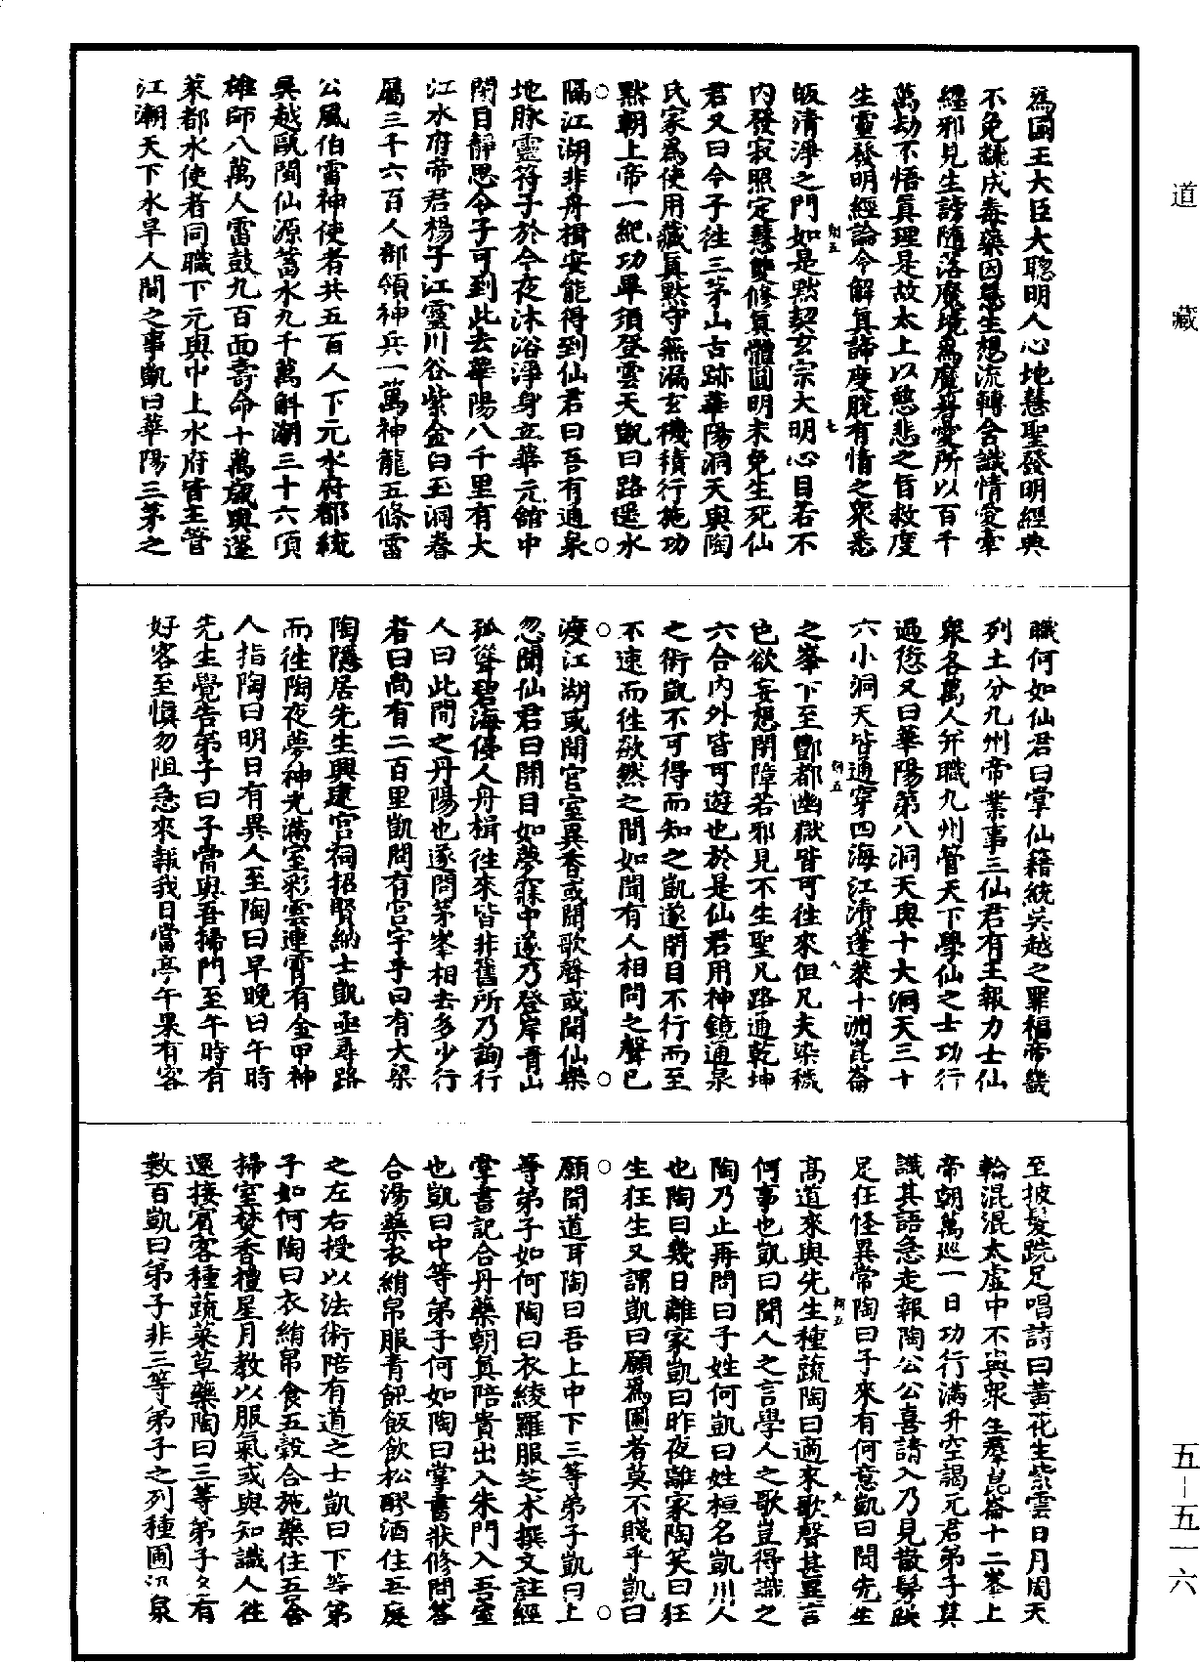 道藏
五-五一六
爲國王大臣大聰明人心地慧聖發明經典
不免飜成毒藥因慈生想流轉含識情愛牽
纏邪見生謗隨落魔境爲魔着愛所以百千
萬劫不悟眞理是故太上以慈悲之旨救度
生靈發明經論令解眞諦度脫有情之衆悉
皈清淨之門如是默契玄宗大明心目若不
内發寂照定慧雙修眞體圓明未免生死仙
君又曰今子往三茅山古跡華陽洞天與陶
氏家爲使用藏眞默守無漏玄機積行施功
默朝上帝一紀功畢須登雲天凱曰路遥水
隔江湖非舟楫安能得到仙君曰吾有通泉
地脉靈符子於今夜沐浴淨身立華元館中
閉目靜思令子可到此去華陽八千里有大
江水府帝君楊子江靈川谷紫金白玉洞眷
屬三千六百人部領神兵一萬神龍五條雷
公風伯雷神使者共五百人下元水府都統
吳越歐閩仙源蓄水九千萬斛潮三十六項
雄師八萬人雷鼓九百面壽命十萬歲與蓬
萊都水使者同職下元與中上水府皆主管
江潮天下水旱人間之事凱曰華陽三茅之
職何如仙君曰掌仙籍統吳越之罪福帝畿
列土分九州帝業事三仙君有主報力士仙
衆各萬人幷職九州管天下學仙之士功行
過愆又曰華陽第八洞天與十大洞天三十
六小洞天皆通穿四海江瀆蓬萊十洲崑崙
之峯下至酆都幽獄皆可往來但凡夫染穢
色欲妄想閉障若邪見不生聖凡路通乾坤
六合内外皆可遊也於是仙君用神鏡通泉
之術凱不可得而知之凱遂閉目不行而至
不速而往欻然之間如聞有人相問之聲已
渡江湖或聞宮室異香或聞歌聲或聞仙樂
忽聞仙君曰開目如夢寐中遂乃登岸青山
孤聳碧海優人舟楫往來皆非舊所乃詢行
人曰此間之丹陽也遂問茅峯相去多少行
者曰尚有二百里凱問有宮宇乎曰有大梁
陶隱居先生興建宮祠招賢納士凱亟尋路
而往陶夜夢神光滿室彩雲連霄有金甲神
人指陶曰明日有異人至陶曰早晚曰午時
先生覺告弟子曰子需與吾掃門至午時有
好客至愼勿阻急來報我日當亭午果有客
至披髮跣足唱詩曰黃花生紫雲日月周天
輪混混太虛中不與衆生羣崑崙十二峯上
帝朝萬巡一日功行滿升空謁元君弟子莫
識其語急走報陶公公喜請入乃見散髮跣
足狂怪異常陶曰子來有何意凱曰聞先生
高道來與先生種蔬陶曰適來歌聲甚異言
何事也凱曰聞人之言學人之歌豈得識之
陶乃止再問曰子姓何凱曰姓桓名凱川人
也陶曰幾日離家凱曰昨夜離家陶笑曰狂
生狂生又謂凱曰願爲圃者莫不賤乎凱曰
願聞道耳陶曰吾上中下三等弟子凱曰上
等弟子如何陶曰衣綾羅服芝术撰文註經
掌書記合丹藥朝眞陪貴出入朱門入吾室
也凱曰中等弟子何如陶曰掌書狀修問答
合湯藥衣絹帛服青飢飯飲松醪酒住吾庭
之左右授以法術陪有道之士凱曰下等弟
子如何陶曰衣絹帛食五穀合施藥住五舍
掃室焚香禮星月教以服氣或與知識人往
還接賓客種蔬菜草藥陶曰三等弟子各有
數百凱曰弟子非三等弟子之列種圃汲泉